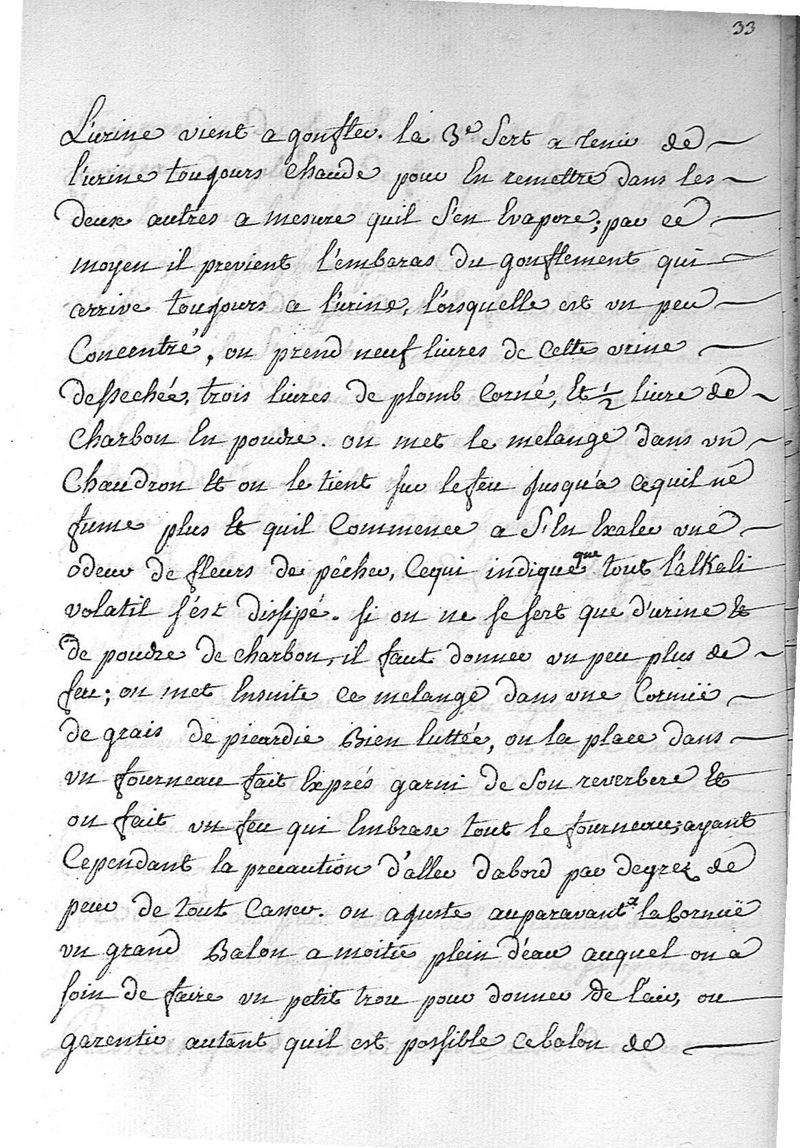 33
L'urine vient a gonfler. la 3e. Sert a tenir de
l'urine toujours chaude pour En remettre dans les
deux autres a mesure quil S'en Evapore; par ce
moyen il previent l'embaras du gonflement qui
arrive toujours a l'urine, lorsquelle est un peu
Concentré, on prend neuf livres de Cette urine
dessechée, trois livres de plomb Corné, Et ½ livre de
Charbon En poudre. on met le melange dans un
Chaudron Et on le tient sur le feu jusqu'a cequil ne
fume plus Et quil Commence a S'En Exaler une
odeur de fleurs de pêcher, Cequi indique que tout l'alkali
volatil s'est dissipé. si on ne se sert que d'urine Et
de poudre de charbon, il faut donner un peu plus de
feu; on met Ensuite ce melange dans une Cornuë
de grais de picardie Bien luttée, on la place dans
un fourneau fait Exprés garni de Son reverbere Et
on fait un feu qui Embrase tout le fourneau; ayant
Cependant la precaution d'aller d'abord par degrez de
peur de tout Casser. on ajuste auparavant la Cornuë
un grand Balon a moitie plein d'eau auquel on a
soin de faire un petit trou pour donner de l'air, on
garentie autant quil est possible ce balon de